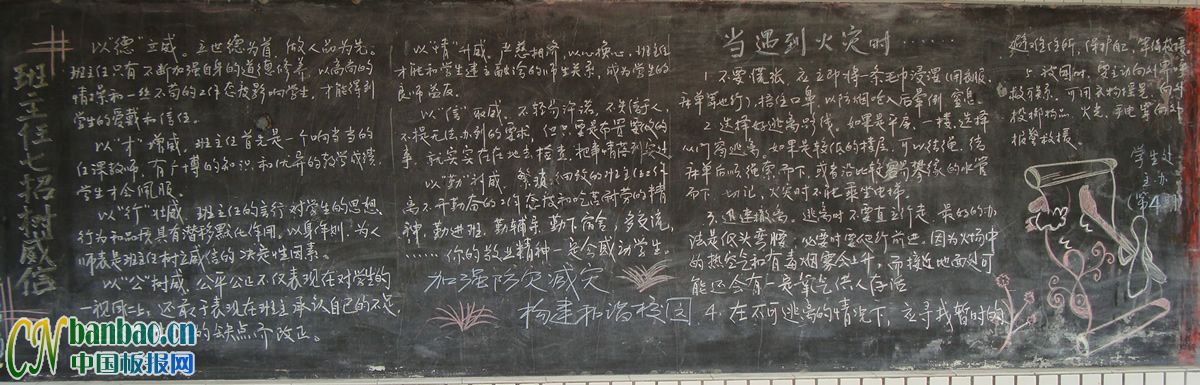 班主任七招树威信
以“德”立威。立世德为首,做人品为先。
班主任只有不断加强自身的道德修养,以高尚的
情操和一丝不苟的工作态度影响学生,才能得到
学生的爱戴和信任。
以“才”增威,班主任首先是一个响当当的
任课教师,有广博的知识和优异的教学成绩,
学生才会佩服。
以“行”壮威,班主任的言行对学生的思想、
行为和品质具有潜移默化作用。以身作则,为人
师表是班主任树立威信的决定性因素。
以“公”树威,公平公正不仅表现在对学生的
一视同仁上,还敢于表现在班主承认自己的不足
的缺点而改正。
以“情”升威,严慈相济,以心换心,班主任
才能和学生建立融洽的师生关系,成为学生的
良师益友。
以“信”取威。不轻易许诺,不失信于人,
不提无法办到的要求,但只要是布置要改的
事,就实实在在地去检查,把事情落到实处
以“勤”补威。繁琐、细致的班主任工作
离不开勤奋的工作态度和吃苦耐劳的精
神,勤进班,勤辅导,勤下宿舍,多交流,
……你的敬业精神一定会感动学生。
加强防灾减灾
构建和谐校园
当遇到火灾时……
1.不要慌张,应立即将一条毛巾浸湿(用衣服、
床单等也行),捂住口鼻,以防烟呛入后晕倒、窒息。
2.选择好逃离路线。如果是平房、一楼,选择
从门窗逃离。如果是较低的楼层,可以结绳、结
床单后顺绳索而下,或者沿比较容易攀缘的水管
而下,切记,火灾时不能乘坐电梯。
3.迅速撤离。逃离时不要直立行走,最好的办
法是低头弯腰,必要时要爬行前进,因为火场中
的热空气和有毒烟雾会上升,而接近地面处可
能还会有一定氧气供人存活
4.在不可逃离的情况下,应寻找暂时的
避难住所,保护自己,等待救援
5.被困时,要主动向外界
救联系,可用衣物摆晃,向外
抛掷物品、火光、手电等向外
报警救援。
学生处
主办
(第4期)
CN banbao.cn
中国板报网